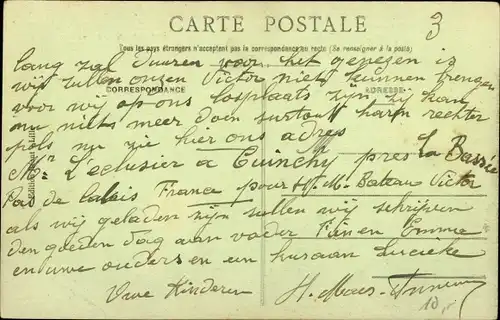 CARTE POSTALE
3
Tous les pays étrangers n'acceptent pas la correspondance au recto (Se renseigner à la poste)
CORRESPONDANCE
ADRESSE
lang zal duuren voor het gepegen is
wij zullen onzen Victor niet kunnen brengen
voor wij op ons losplaats zijn zij kan
nu niets meer doen surtout haren rechter
pols nu zie hier ons adres
Mr L'eclusier a Cuinchy pres la Bassée
Pas de Calais France pour H. M. Bateau Victor
als wij geladen zijn zullen wij schrijven
den goeden dag aan vader Emme
en uwe ouders en een kusaan Lucieke
Uwe Kinderen
H. Maes
10